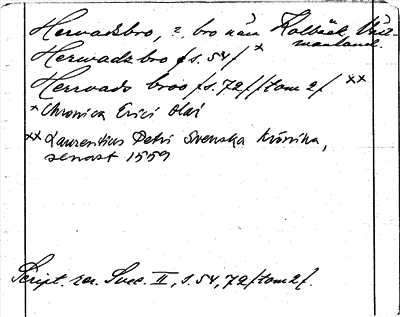 Hervadsbro, ?, bro nära Kolbäck, Väst-
manland.
Herwadz bro [s. 54] *
Herrvads broo [s. 72 [tom 2] **
* Chronica Erici Olai
** Laurentius Petri Svenska Krönika,
senast 1559
Script. rer. Svec. II, s. 54, 72 [tom 2].